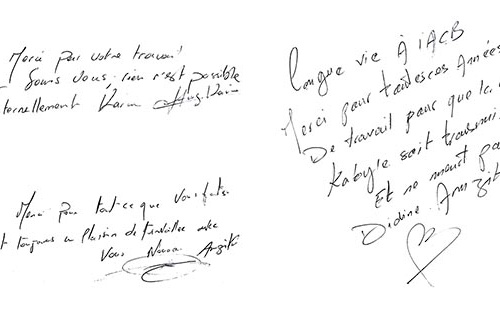 Merci pour votre travail
Sans vous, rien n'est possible
ternellement Karim
Merci pour tout ce que vous faites
t toujours un plaisir de travailler avec
Vous Nouara Amziti
Longue vie à l'ACB
Merci pour toutes ces Années
De travail pour que la
Kabyle soit transmi
Et ne meurt pa
Didine Amzit